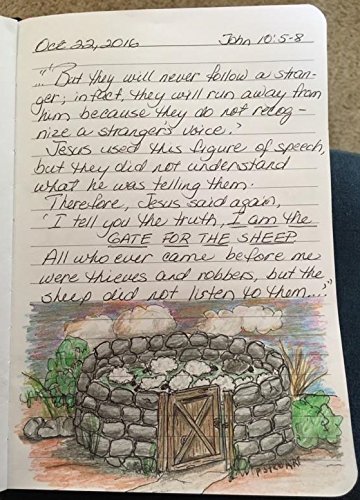 Oct 22, 2016 John 10:5-8
..."But they will never follow a stran-
ger; in fact, they will run away from
him because they do not recog-
nize a stranger's voice."
Jesus used this figure of speech,
but they did not understand
what he was telling them.
Therefore, Jesus said again,
"I tell you the truth, I am the
GATE FOR THE SHEEP
All who ever came before me
were thieves and robbers, but the
sheep did not listen to them...."